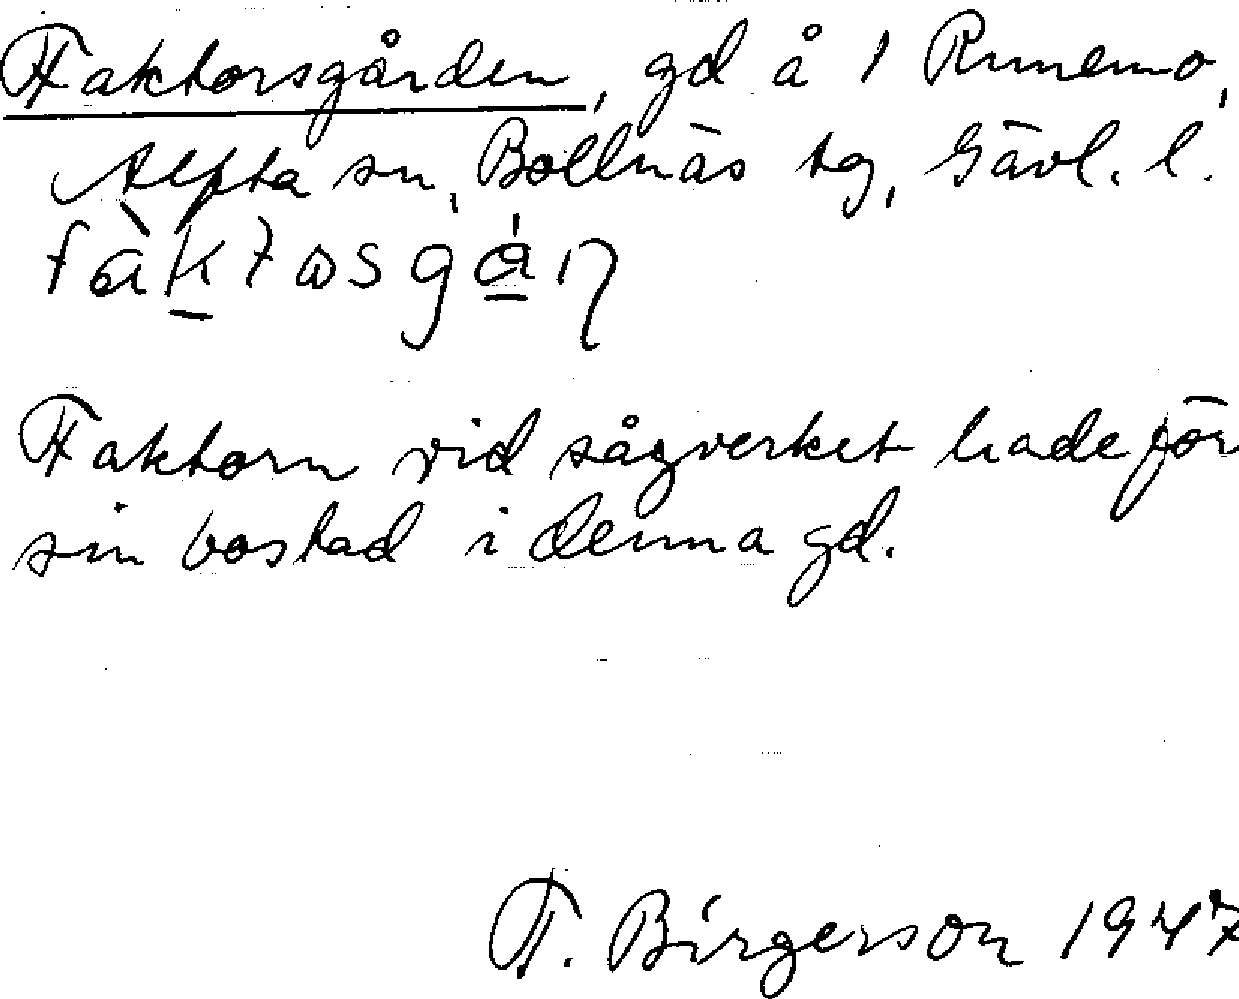 Faktorsgården, gd å 1 Runemo,
Alfta sn, Bollnäs tg, Gävl. l.
fàk̠tɷsgá̠ɳ
Faktorn vid sågverket hade för
sin bostad i denna gd.
F. Birgerson 1947